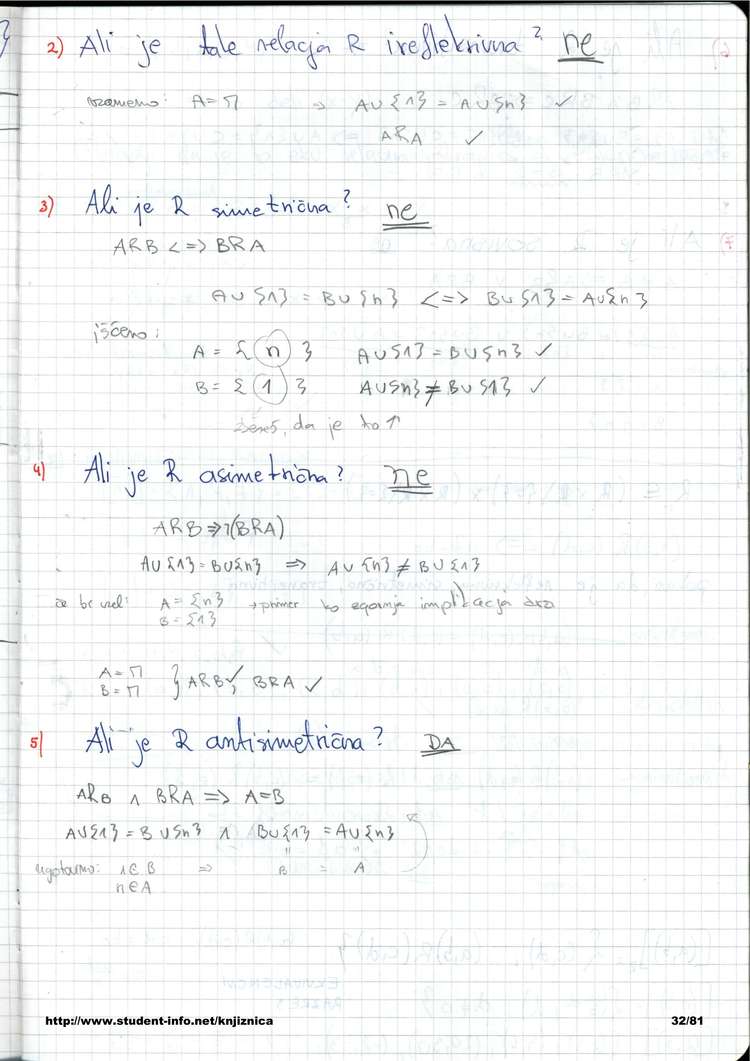 2) Ali je tale relacija R irefleksivna? ne
vzamemo: A = Π ⇒ A∪{1} = A∪{n} ✓
ARA ✓
3) Ali je R simetrična? ne
ARB <=> BRA
A∪{1} = B∪{n} <=> B∪{1} = A∪{n}
iščemo:
A = {n} A∪{1} = B∪{n} ✓
B = {1} A∪{n} ≠ B∪{1} ✓
da je to ↑
4) Ali je R asimetrična? ne
ARB => ¬(BRA)
A∪{1} = B∪{n} => A∪{n} ≠ B∪{1}
če bi vzel: A = {n} → primer ko zgornja implikacija drži
B = {1}
A = Π
B = Π } ARB ✓, BRA ✓
5) Ali je R antisimetrična? DA
ARB ∧ BRA => A=B
A∪{1} = B∪{n} ∧ B∪{1} = A∪{n}
ugotovimo: 1∈B => B = A
n∈A
http://www.student-info.net/knjiznica 32/81